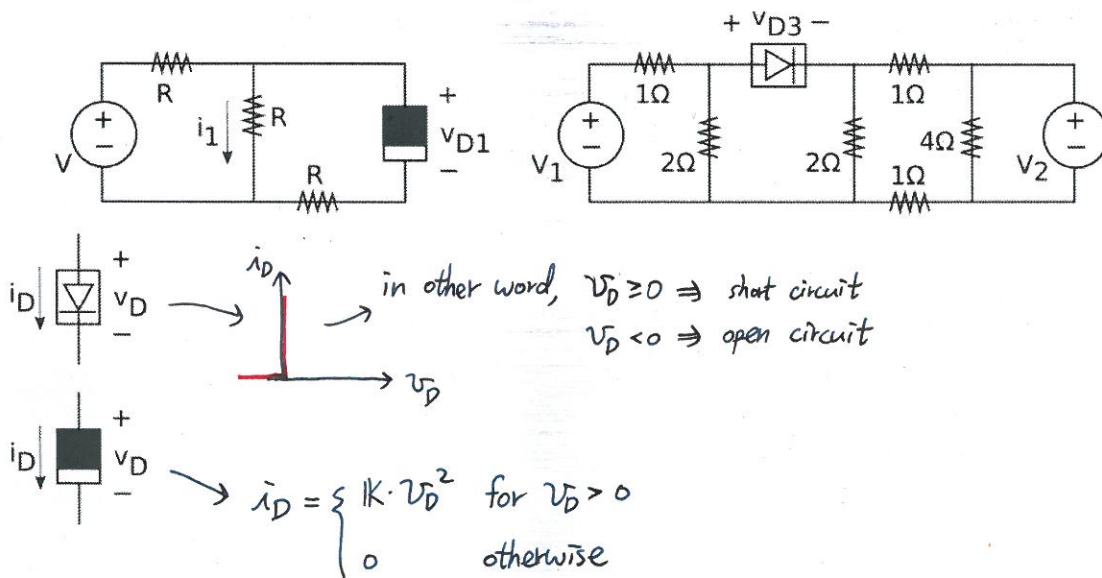 + v_D3 −
R
1Ω
1Ω
+
−
V
i_1
R
+
v_D1
−
R
+
−
V_1
2Ω
2Ω
4Ω
1Ω
+
−
V_2
i_D
+
v_D
−
i_D
v_D
in other word, v_D ≥ 0 ⇒ short circuit
v_D < 0 ⇒ open circuit
i_D
+
v_D
−
i_D = { K · v_D^2 for v_D > 0
0 otherwise